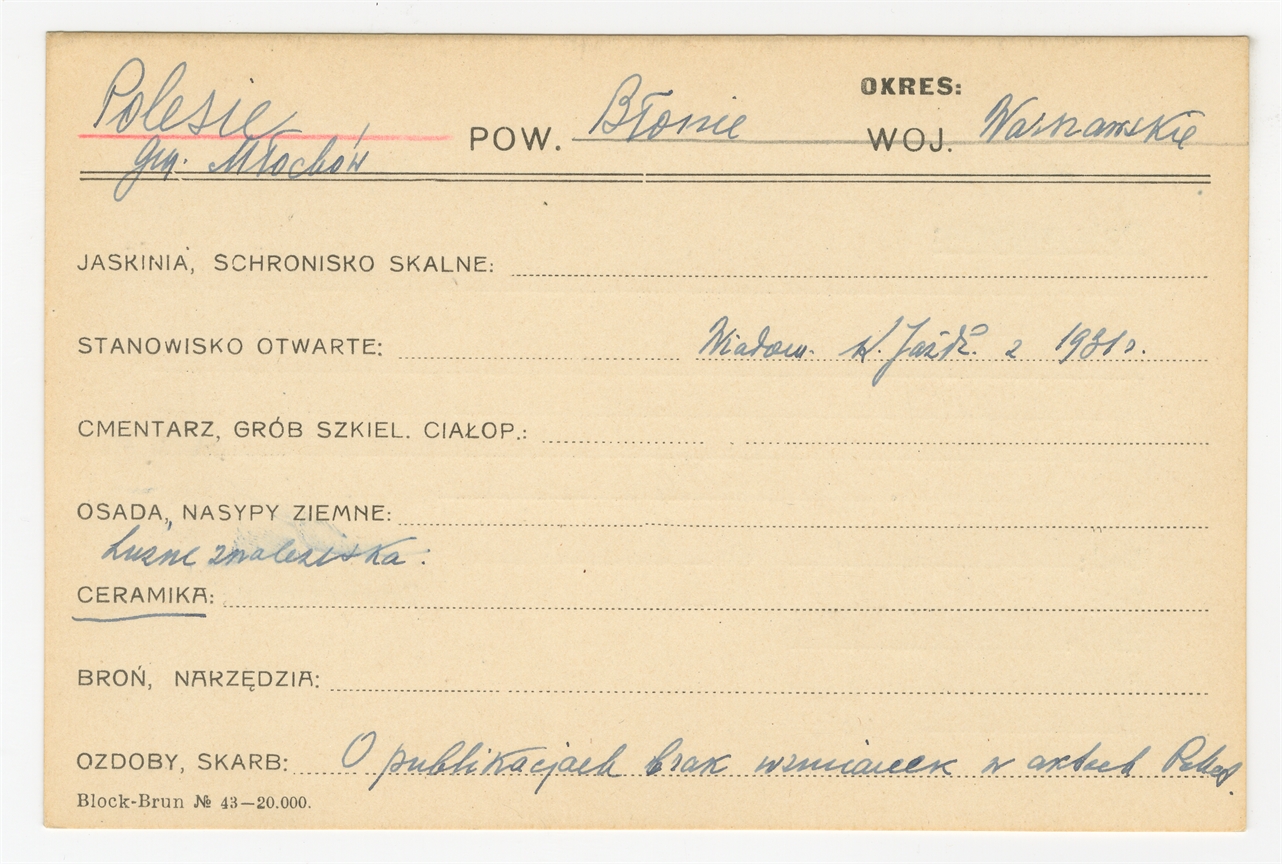 OKRES:
Polesie POW. Błonie WOJ. Warszawskie
gm. Młochów
JASKINIA, SCHRONISKO SKALNE:
STANOWISKO OTWARTE: Wiadom. K. Jażdż. z 1931 r.
CMENTARZ, GRÓB SZKIEL. CIAŁOP.:
OSADA, NASYPY ZIEMNE:
Luźne znaleziska:
CERAMIKA:
BROŃ, NARZĘDZIA:
OZDOBY, SKARB: O publikacjach brak wzmianek w aktach
Block-Brun № 43—20.000.